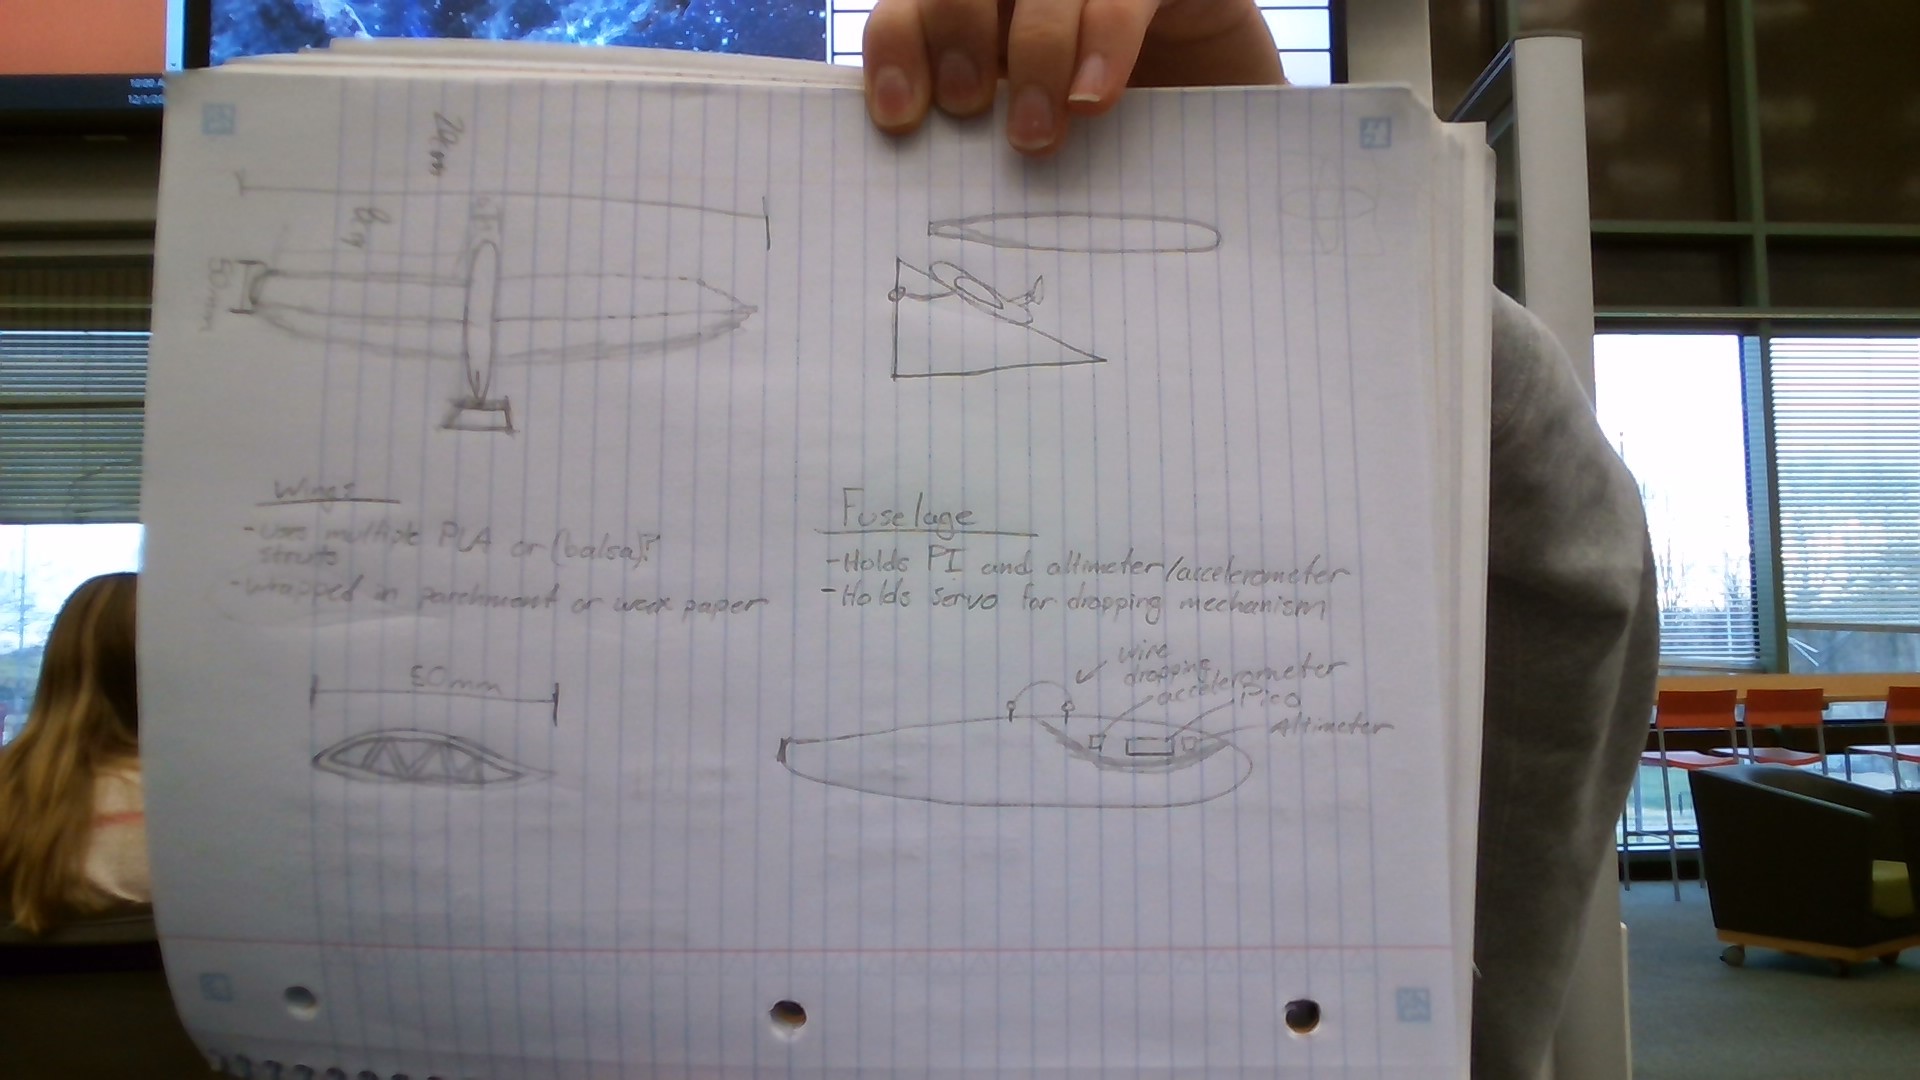 50mm
Wings
- uses multiple PLA or (balsa)?
struts
- wrapped in parchment or wax paper
50mm
Fuselage
- Holds PI and altimeter/accelerometer
- Holds servo for dropping mechanism
wire
dropping
accelerometer
Pico
Altimeter